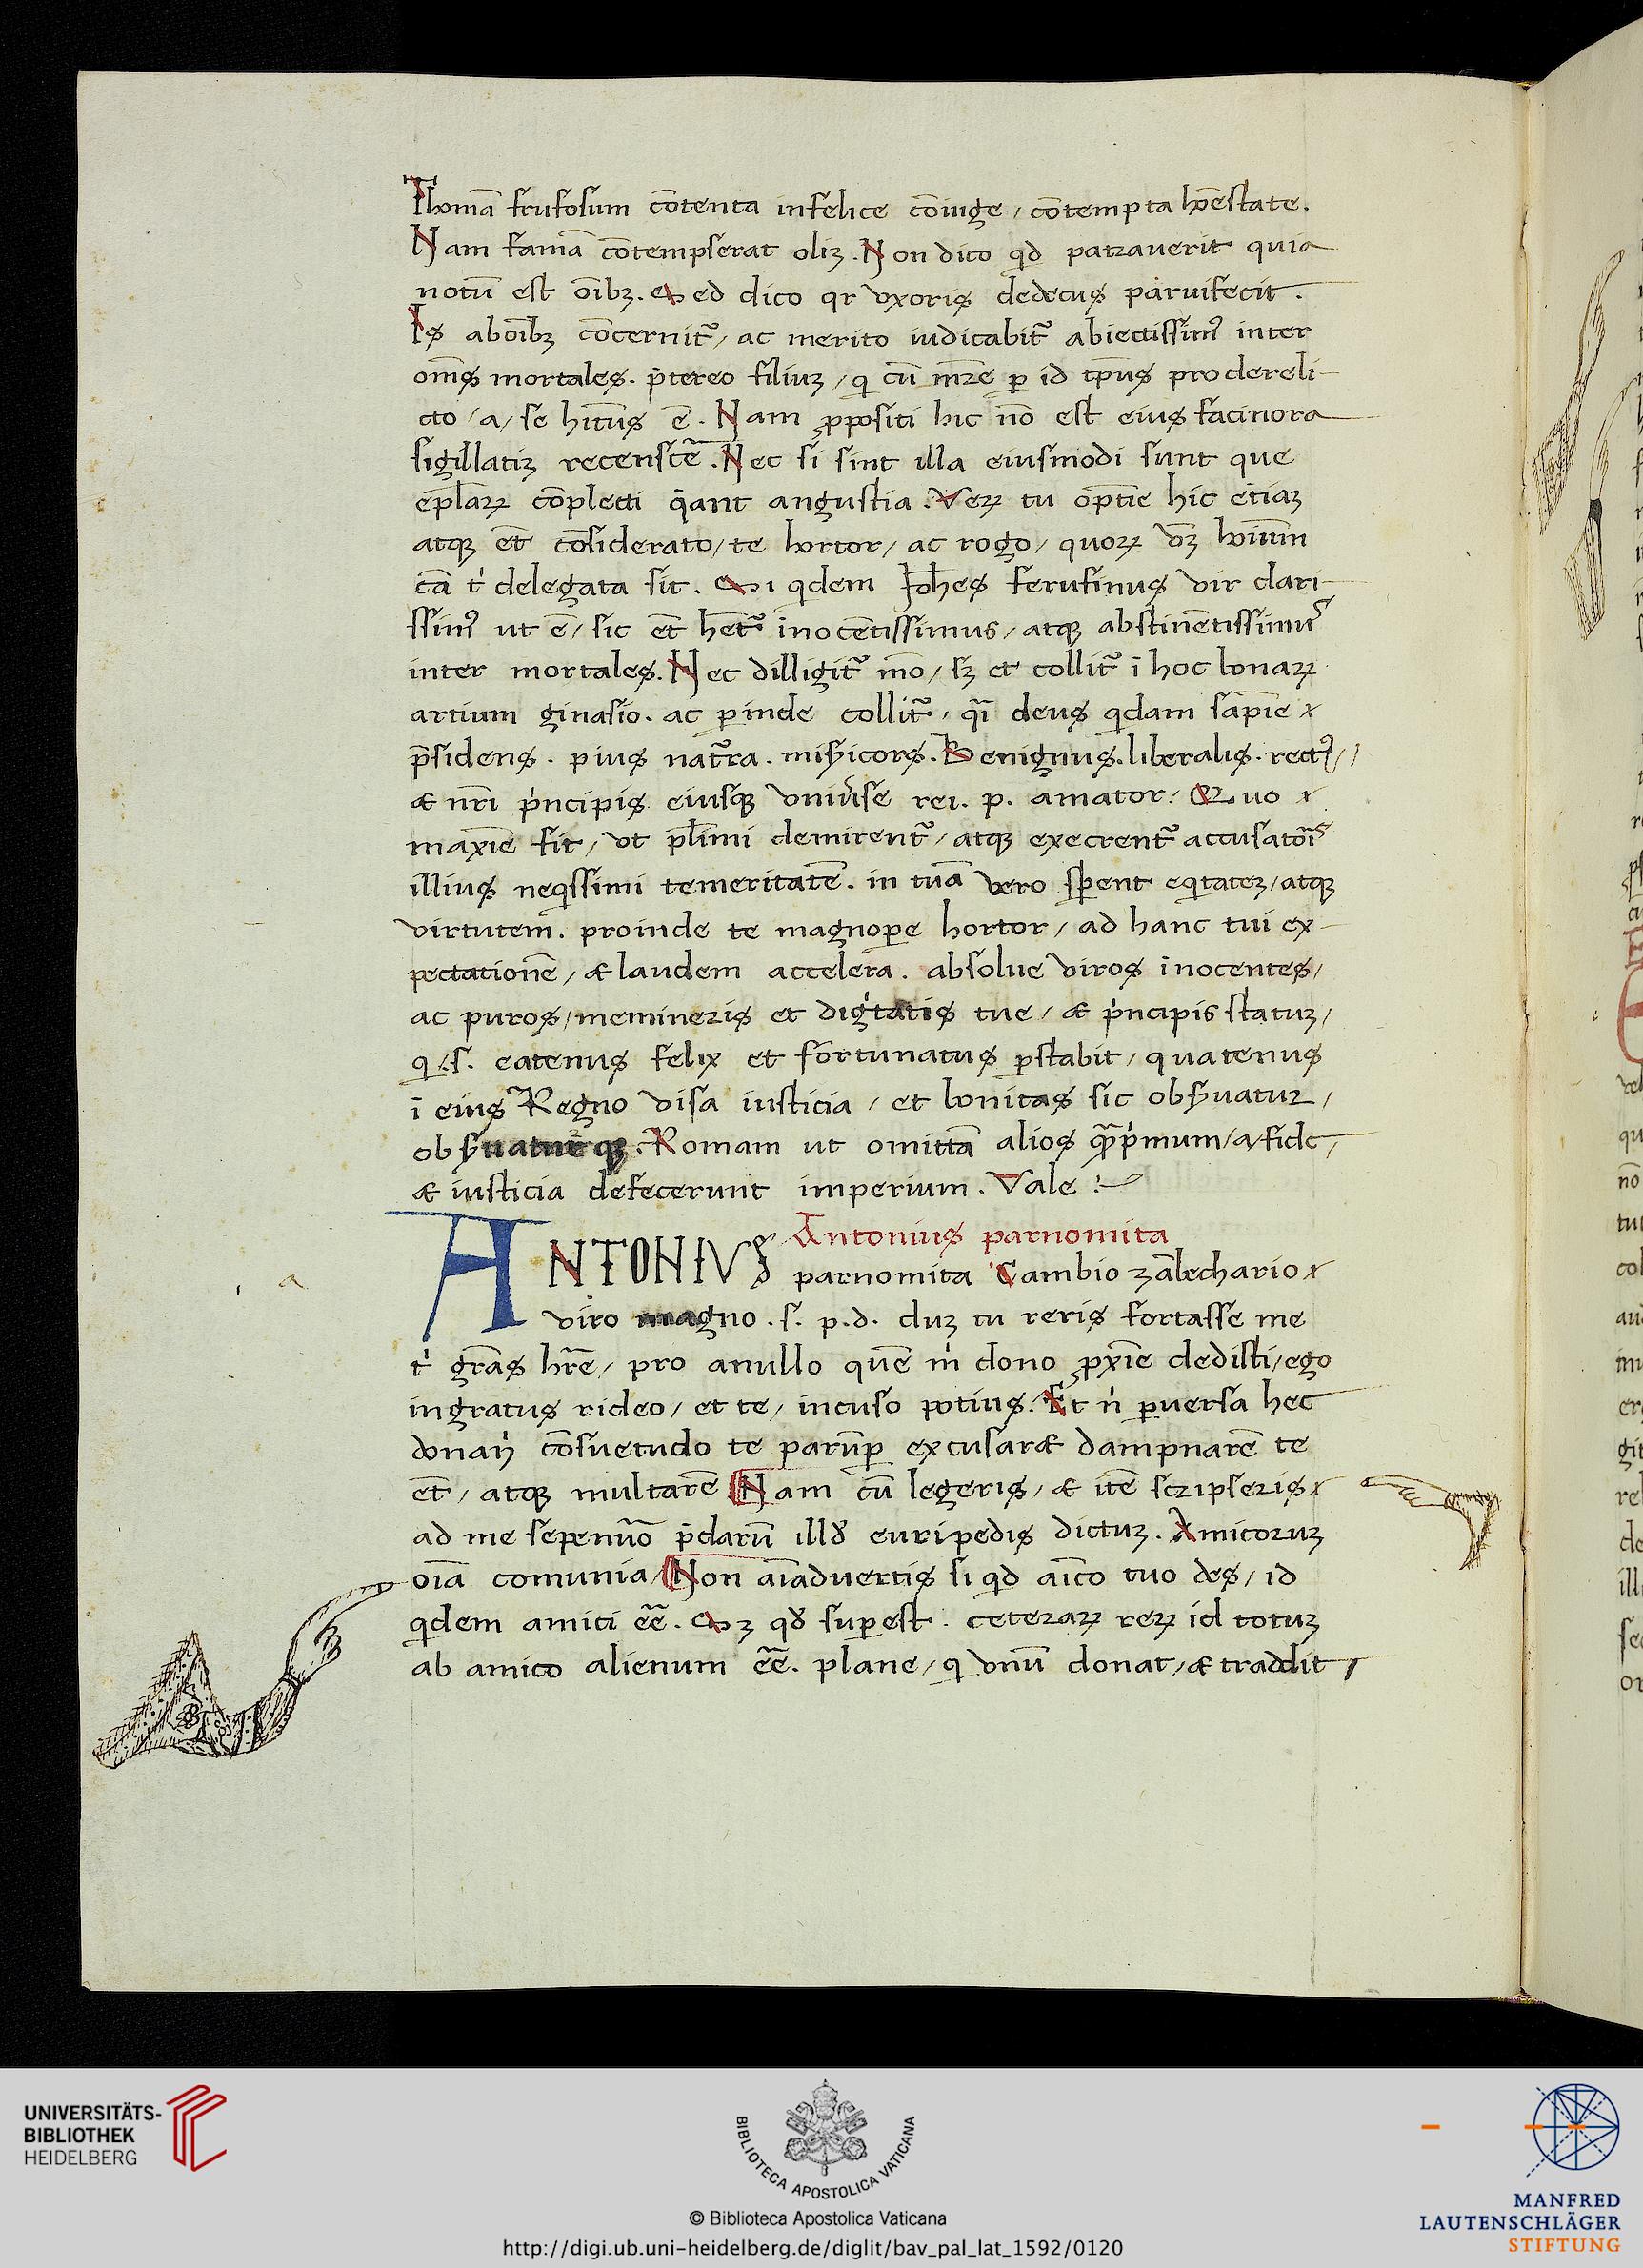 Thomā frufosum cōtenta infelice cōiuge / cōtempta hōestate.
Nam famā cōtempserat oliꝫ. Non dico qd patrauerit quia
notū est oībꝫ. Sed dico qr vxoris dedecus paruifecit.
Is aboībꝫ cōcernit᷑, ac merito iudicabit᷑ abiectissimꝰ inter
om̄s mortales. p̄tereo filiuꝫ, q cū mr̄e ꝑ id tp̄us pro dereli-
cto / a / se hitus ē. Nam ꝓpositi hic nō est eius facinora
sigillatiꝫ recensēe. Nec si sint illa eiusmodi sunt que
ep̄laꝝ cōplecti q̇ant angustia. Veꝝ tu optīe hic etiaꝫ
atqꝫ et̄ cōsiderato / te hortor / ac rogo / quoꝝ vꝫ hoīum
cā t̓ delegata sit. Mi qdem Joh̄es ferufinus vir clari-
ssimꝰ ut ē / sic et̄ het᷑ inocētissimus / atqꝫ abstinētissimꝰ
inter mortales. Nec dilligit᷑ mō / sꝫ et collit᷑ ī hoc bonaꝝ
artium ginasio. ac ꝑinde collit᷑, qī deus qdam sapīe
p̄sidens. pius nat᷑ra. miꝭicors. Benignus. liberalis. rectꝰ /
& nr̄i p̓ncipis eiusqꝫ vniu̓se rei. p. amator. Quo
maxīe fit / vt pl̄imi demirent᷑ / atqꝫ execrent᷑ accusatōis
illius neqssimi temeritatē. in tuā vero sꝑent eqtateꝫ / atqꝫ
virtutem. proinde te magnoꝑe hortor / ad hanc tui ex-
pectationē / & laudem accelera. absolue viros īnocentes /
ac puros / memineris et dig̓tatis tue / & p̓ncipis statuꝫ /
q .s. eatenus felix et fortunatus ꝑstabit / quatenus
ī eius Regno visa iusticia / et bonitas sic obꝭuatur /
obꝭuaturqꝫ. Romam ut omittā alios qꝫp̓mum / a / fide /
& iusticia defecerunt imperium. Vale :~
Antonius parnomita
ANTONIVS parnomita Cambio zābechario
viro magno. s. p. d. duꝫ tu reris fortasse me
t̓ grās hr̄e / pro anullo quē m̓ dono ꝓxīe dedisti / ego
ingratus rideo / et te / incuso potius. Et n̓ ꝑuersa hec
donan̓ cōsuetudo te parūꝑ excusar& dampnarē te
et̄ / atqꝫ multarē Nam cū legeris / & itē scripseris
ad me sepenuō p̄clarū illď euripedis dictuꝫ. Amicoruꝫ
oīa comunia / Non aīaduertis si qd aīco tuo des / id
qdem amici eē̄. Sꝫ qď suꝑest. ceteraꝝ reꝝ id totuꝫ
ab amico alienum eē̄. plane / q vnū donat / & traddit /
a
UNIVERSITÄTS-
BIBLIOTHEK
HEIDELBERG
BIBLIOTECA APOSTOLICA VATICANA
© Biblioteca Apostolica Vaticana
http://digi.ub.uni-heidelberg.de/diglit/bav_pal_lat_1592/0120
MANFRED
LAUTENSCHLÄGER
STIFTUNG